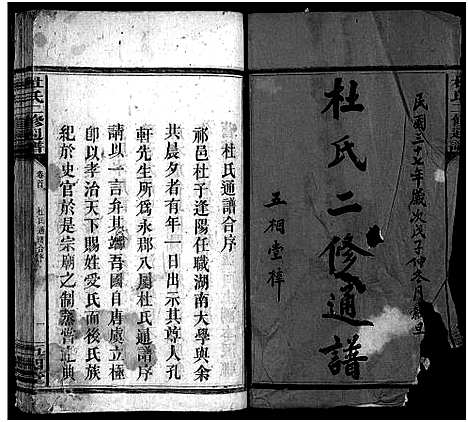 民國三十七年歲次戊子仲冬月
杜氏二修通譜
五桐堂梓
杜氏通譜合序
祁邑杜子逢陽任職湖南大學與余
共晨夕者有年一日出示其尊人孔
軒先生所為永郡八屬杜氏通譜序
請以一言弁其端吾國自唐虞立極
即以孝治天下賜姓受氏而後氏族
紀於史官於是宗廟之制蒸嘗之典
杜氏二修通譜
卷首
杜氏通譜合序
一